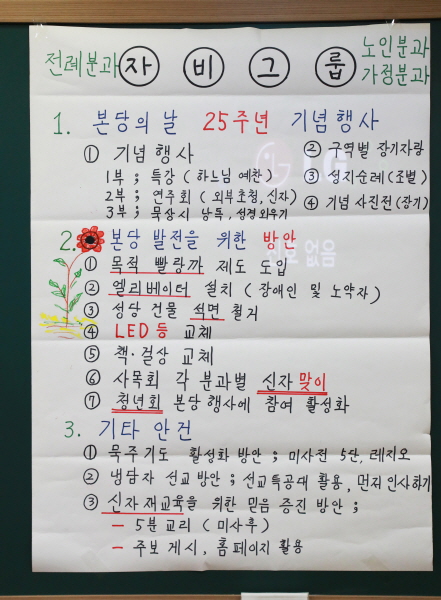 전례분과 자 비 그 룹 노인분과
가정분과
1. 본당의 날 25주년 기념행사
① 기념행사
② 구역별 장기자랑
1부 ; 특강 ( 하느님 예찬 )
③ 성지순례 (조별)
2부 ; 연주회 ( 외부초청, 신자 )
④ 기념 사진전 (장기)
3부 ; 묵상시 낭독, 성경외우기
2. 본당 발전을 위한 방안
① 목적 빨랑까 제도 도입
② 엘리베이터 설치 ( 장애인 및 노약자 )
③ 성당 건물 석면 철거
④ LED등 교체
⑤ 책·걸상 교체
⑥ 사목회 각 분과별 신자 맞이
⑦ 청년회 본당 행사에 참여 활성화
3. 기타 안건
① 묵주기도 활성화 방안 ; 미사전 5단, 레지오
② 냉담자 선교 방안 ; 선교특공대 활용, 먼저 인사하기
③ 신자 재교육을 위한 믿음 증진 방안 ;
- 5분 교리 ( 미사후 )
- 주보 게시, 홈페이지 활용
LG
신호 없음